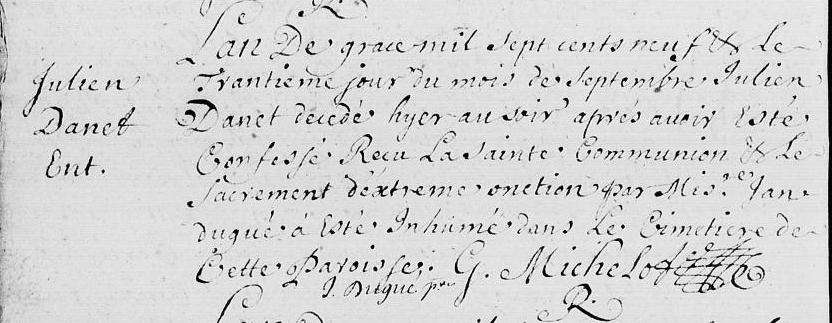 Julien
Danet
Ent.
Lan De grace mil sept cents neuf & Le
Trantieme jour du mois de septembre Julien
Danet decedé hyer au soir aprés avoir Esté
Confessé Recu La sainte Communion & Le
Sacrement d'extreme onction par Mis.re Jan
duqué á Esté Inhumé dans Le Cimetiere de
Cette Paroisse. G. Michelot
J. Duque p.re
R.